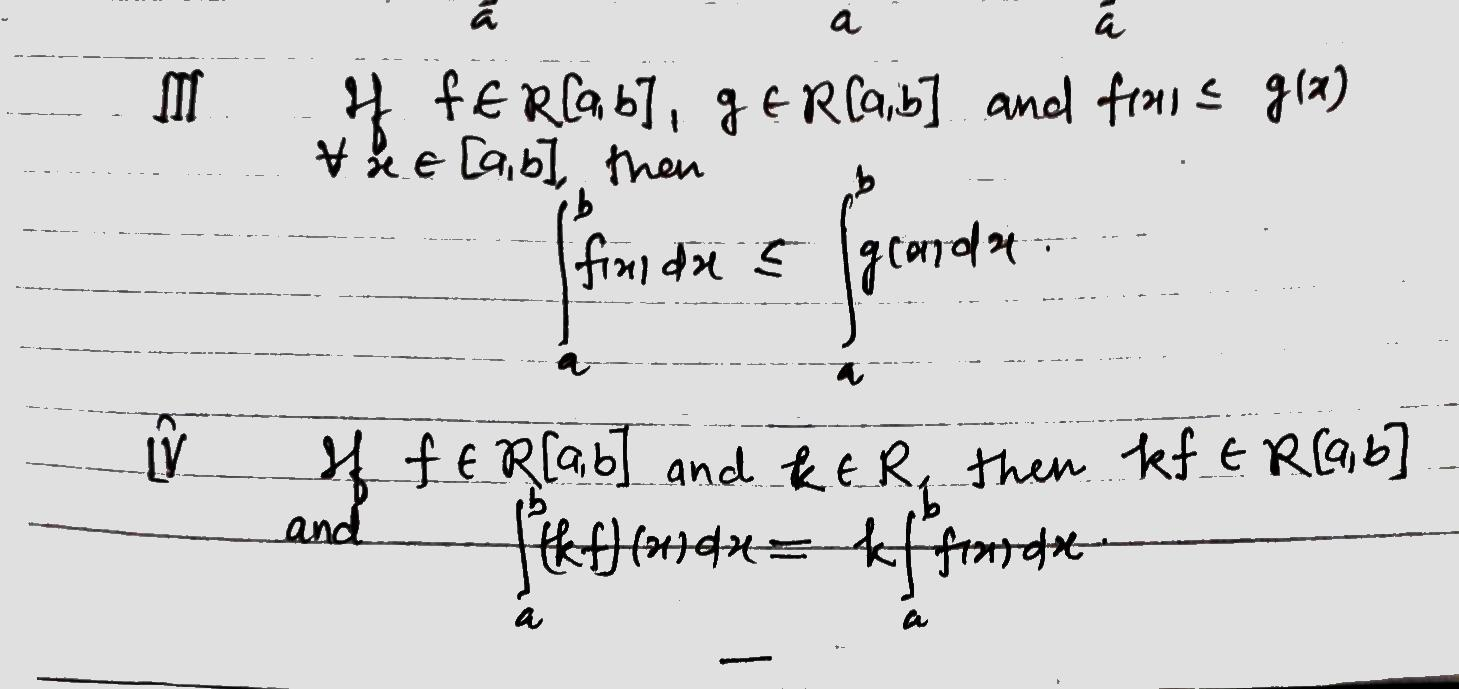 a a a
III If f ∈ R[a,b], g ∈ R[a,b] and f(x) ≤ g(x)
∀ x ∈ [a,b], then
∫_a^b f(x) dx ≤ ∫_a^b g(x) dx.
IV If f ∈ R[a,b] and k ∈ R, then kf ∈ R[a,b]
and ∫_a^b (kf)(x) dx = k ∫_a^b f(x) dx.